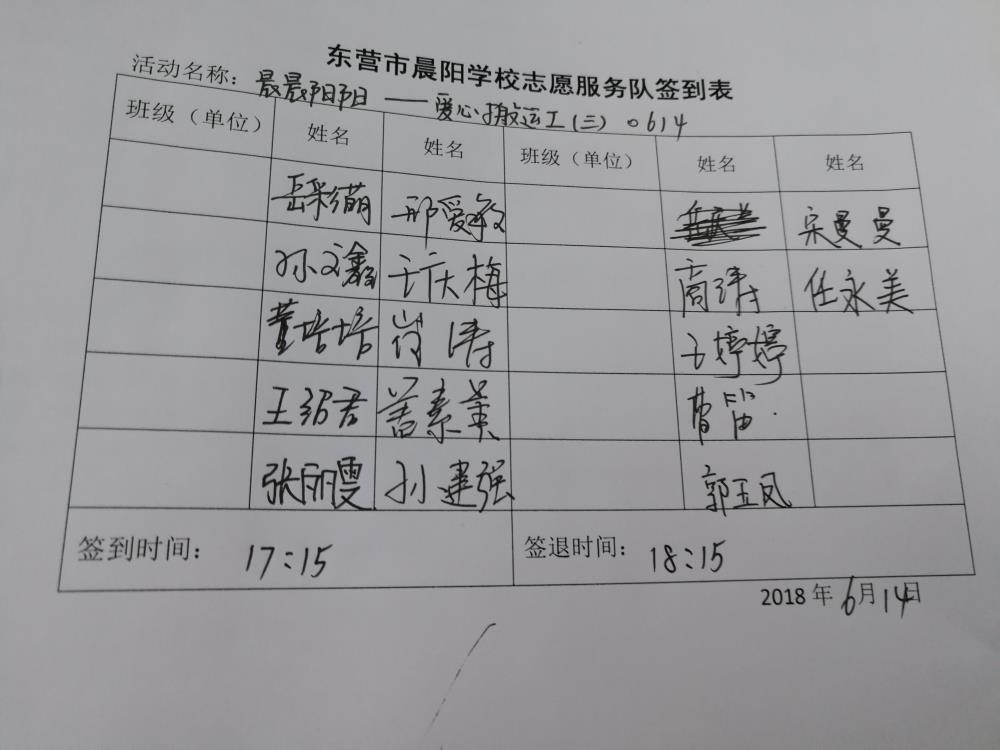 东营市晨阳学校志愿服务队签到表
活动名称：晨晨阳阳——爱心搬运工（三）0614
班级（单位） 姓名 姓名 班级（单位） 姓名 姓名
岳彩萌 邢爱敏 宋曼曼
孙文鑫 于庆梅 高涛 任永美
董培培 尚涛 于婷婷
王绍君 盖素英 曹笛
张丽雯 孙建强 郭玉凤
签到时间：17:15 签退时间：18:15
2018年6月14日